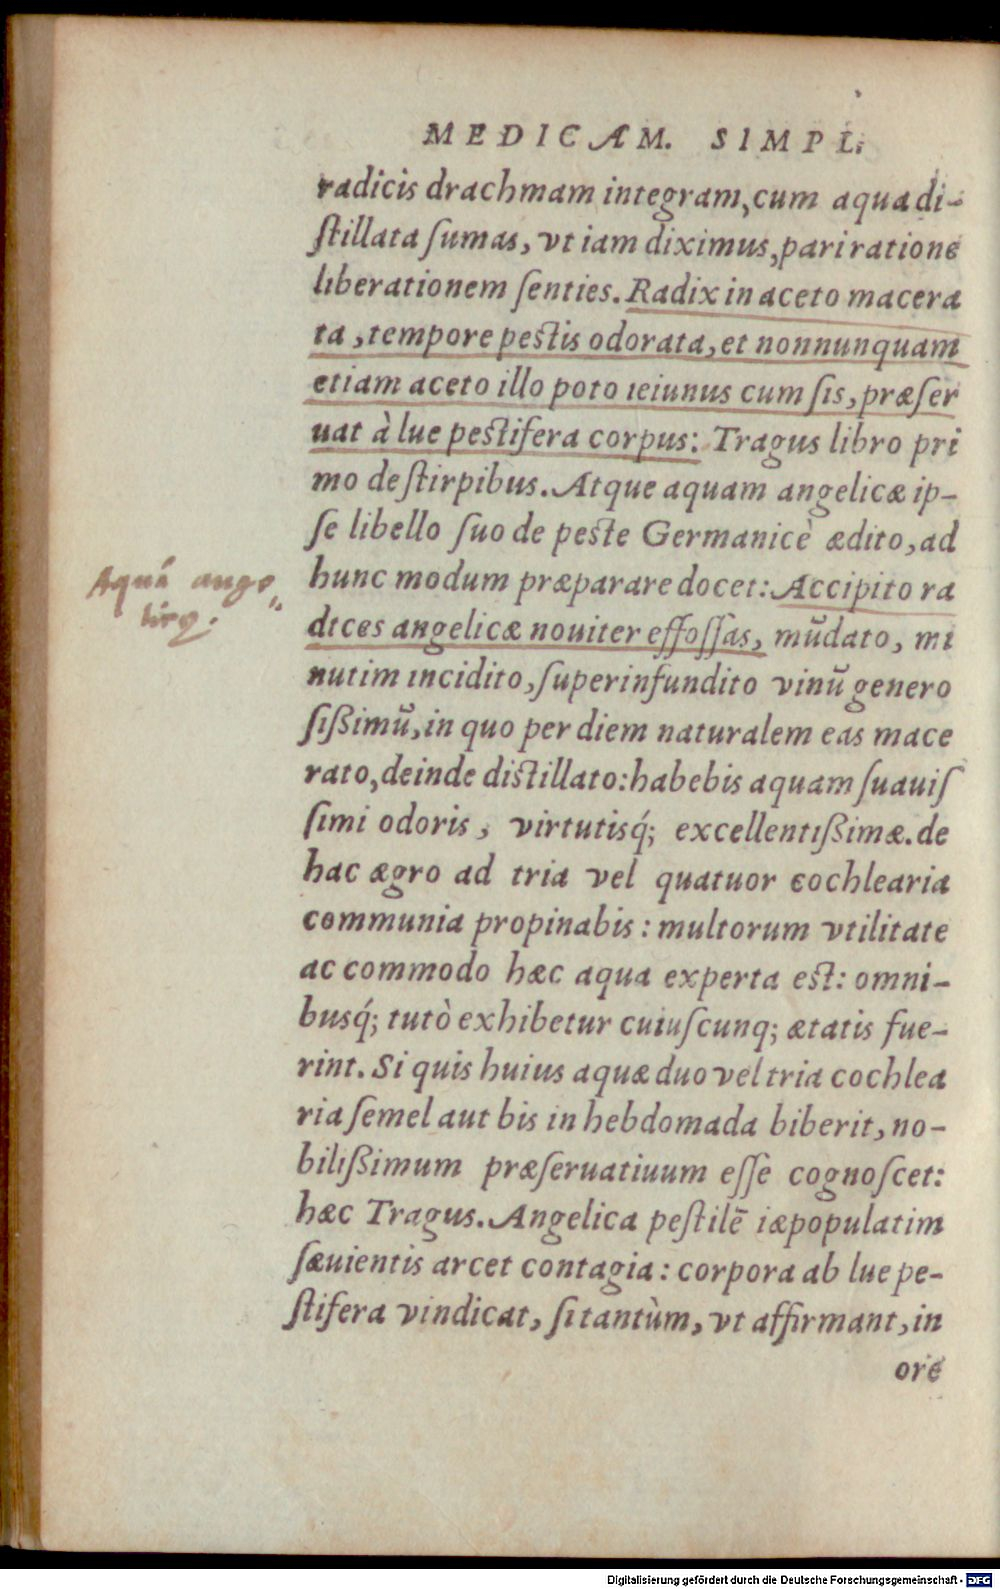 MEDICAM. SIMPL.
radicis drachmam integram, cum aqua di-
ſtillata ſumas, vt iam diximus, pari ratione
liberationem ſenties. Radix in aceto macera
ta, tempore peſtis odorata, et nonnunquam
etiam aceto illo poto ieiunus cum ſis, præſer
uat à lue peſtifera corpus: Tragus libro pri
mo de ſtirpibus. Atque aquam angelicæ ip-
ſe libello ſuo de peſte Germanicè ædito, ad
hunc modum præparare docet: Accipito ra
dices angelicæ nouiter effoſſas, mũdato, mi
nutim incidito, ſuperinfundito vinũ genero
ſißimũ, in quo per diem naturalem eas mace
rato, deinde diſtillato: habebis aquam ſuauiſ
ſimi odoris, virtutisq́; excellentißimæ. de
hac ægro ad tria vel quatuor cochlearia
communia propinabis: multorum vtilitate
ac commodo hæc aqua experta eſt: omni-
busq́; tutò exhibetur cuiuſcunq; ætatis fue-
rint. Si quis huius aquæ duo vel tria cochlea
ria ſemel aut bis in hebdomada biberit, no-
bilißimum præſeruatiuum eſſe cognoſcet:
hæc Tragus. Angelica peſtilẽ iæ populatim
ſæuientis arcet contagia: corpora ab lue pe-
ſtifera vindicat, ſi tantùm, vt affirmant, in
ore
Aqua ange
licę.
Digitalisierung gefördert durch die Deutsche Forschungsgemeinschaft - DFG